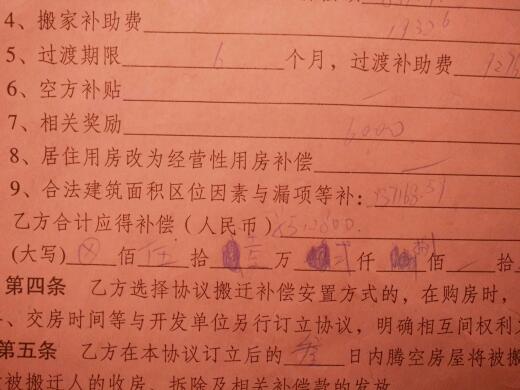 4、搬家补助费
5、过渡期限 6 个月，过渡补助费
6、空方补贴
7、相关奖励 6000
8、居住用房改为经营性用房补偿
9、合法建筑面积区位因素与漏项等补:
乙方合计应得补偿（人民币）
(大写) 佰 伍 拾 万 仟 佰 拾
第四条 乙方选择协议搬迁补偿安置方式的，在购房时，
、交房时间等与开发单位另行订立协议，明确相互间权利
第五条 乙方在本协议订立后的 叁 日内腾空房屋将被搬
被搬迁人的收房、拆除及相关补偿款的发放